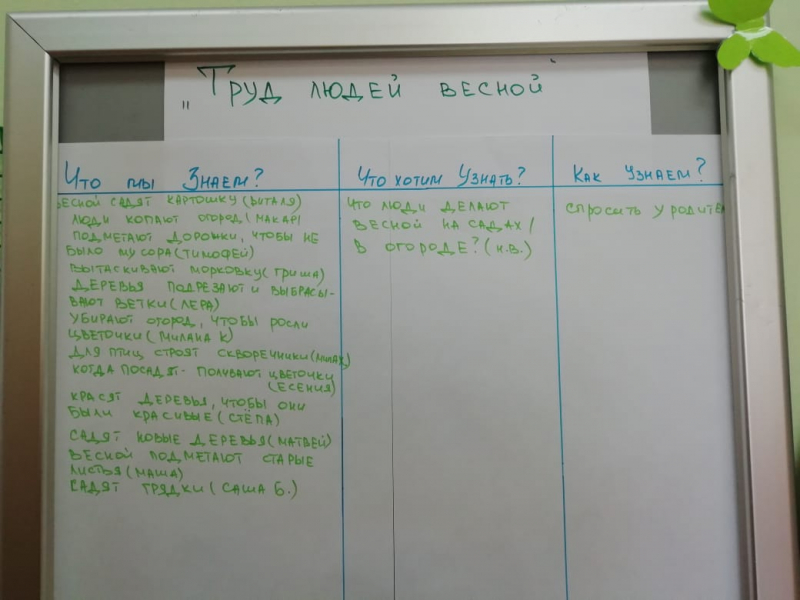 „Труд людей весной
Что мы Знаем?
весной садят картошку (Виталя)
люди копают огород (Макар)
подметают дорожки, чтобы не
было мусора (Тимофей)
вытаскивают морковку (Гриша)
деревья подрезают и выбрасы-
вают ветки (Лера)
убирают огород, чтобы росли
цветочки (Милана К)
для птиц строят скворечники
когда посадят- поливают цветочки
(Есения)
красят деревья, чтобы они
были красивые (Стёпа)
садят новые деревья (Матвей)
весной подметают старые
листья (Маша)
садят грядки (Саша Б.)
Что хотим Узнать?
что люди делают
весной на садах/
в огороде? (Н.В.)
Как Узнаем?
спросить у родител